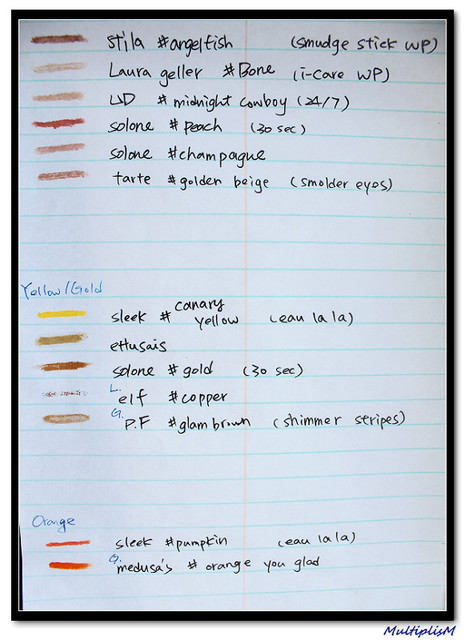 stila #angelfish (smudge stick WP)
Laura geller #Bone (i-care WP)
UD #midnight cowboy (24/7)
solone #peach (30 sec)
solone #champague
tarte #golden beige (smolder eyes)
Yellow/Gold
sleek #canary yellow (eau la la)
ettusais
solone #gold (30 sec)
L. elf #copper
G. P.F #glam brown (shimmer stripes)
Orange
sleek #pumpkin (eau la la)
O. medusa's #orange you glad
MultiplisM